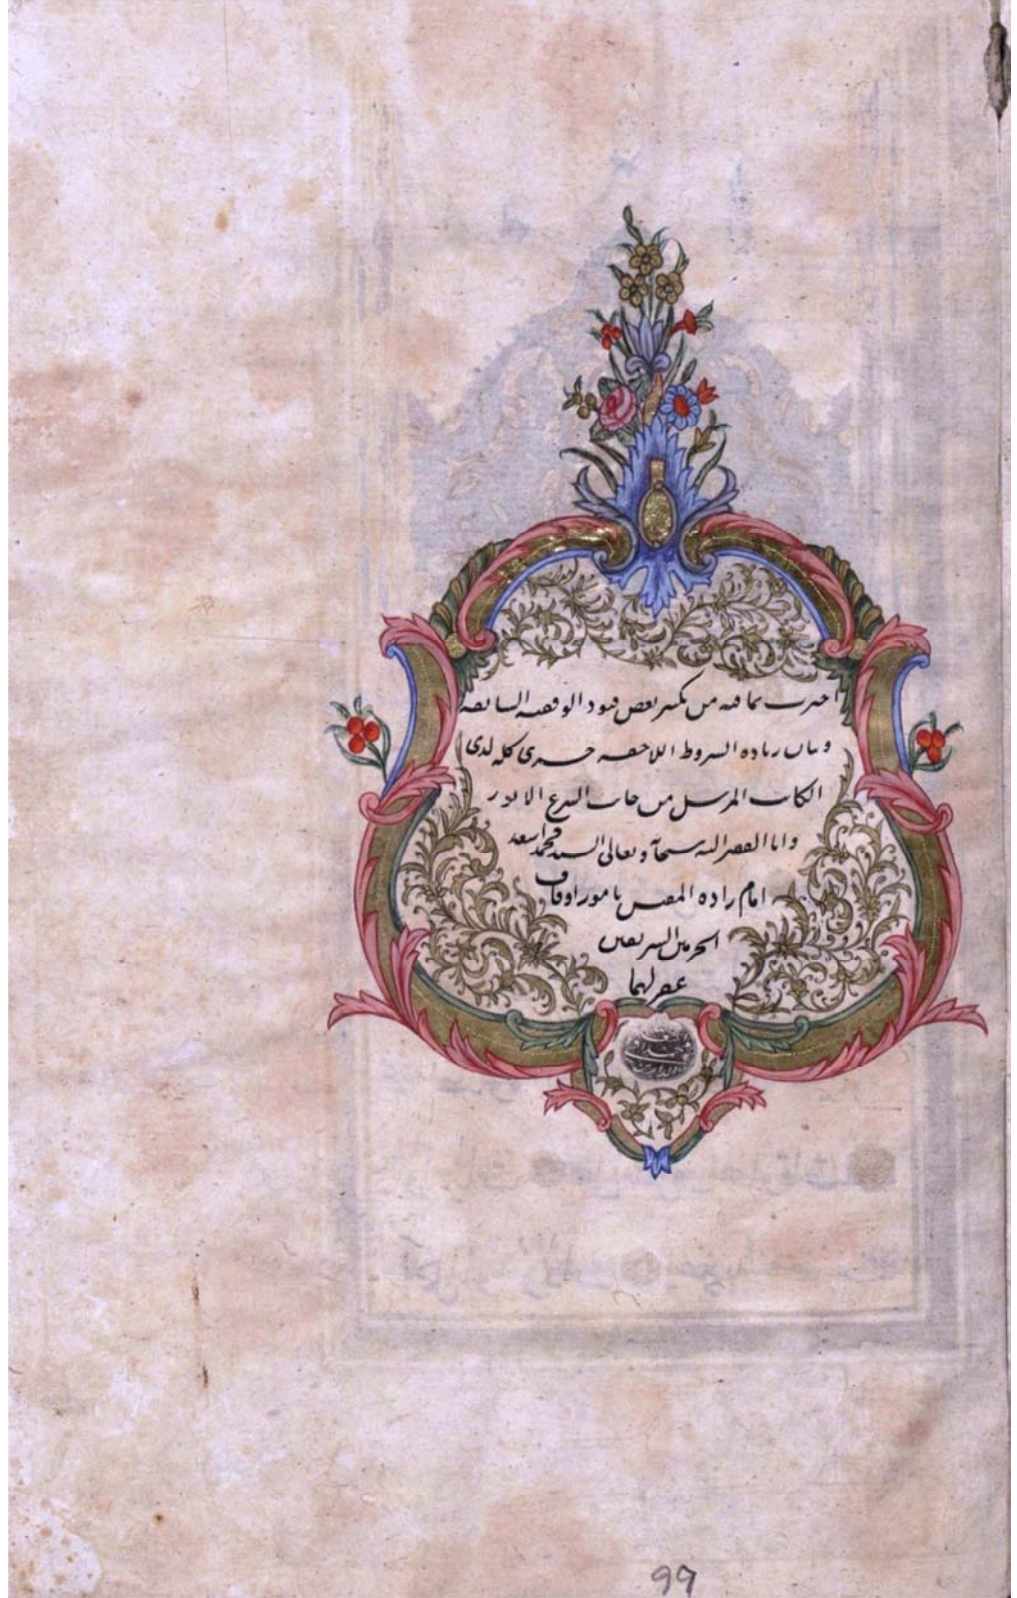 بما فيه من بعض قيود الوقفية السابقة
وبيان زيادة الشروط اللاحقة جرى كله لدى
الكاتب المرسل من جانب الشرع الانور
وانا الفقير اليه سبحانه وتعالى السيد محمد اسعد
امام زاده المفتش بامور اوقاف
الحرمين الشريفين
غفر لهما
99